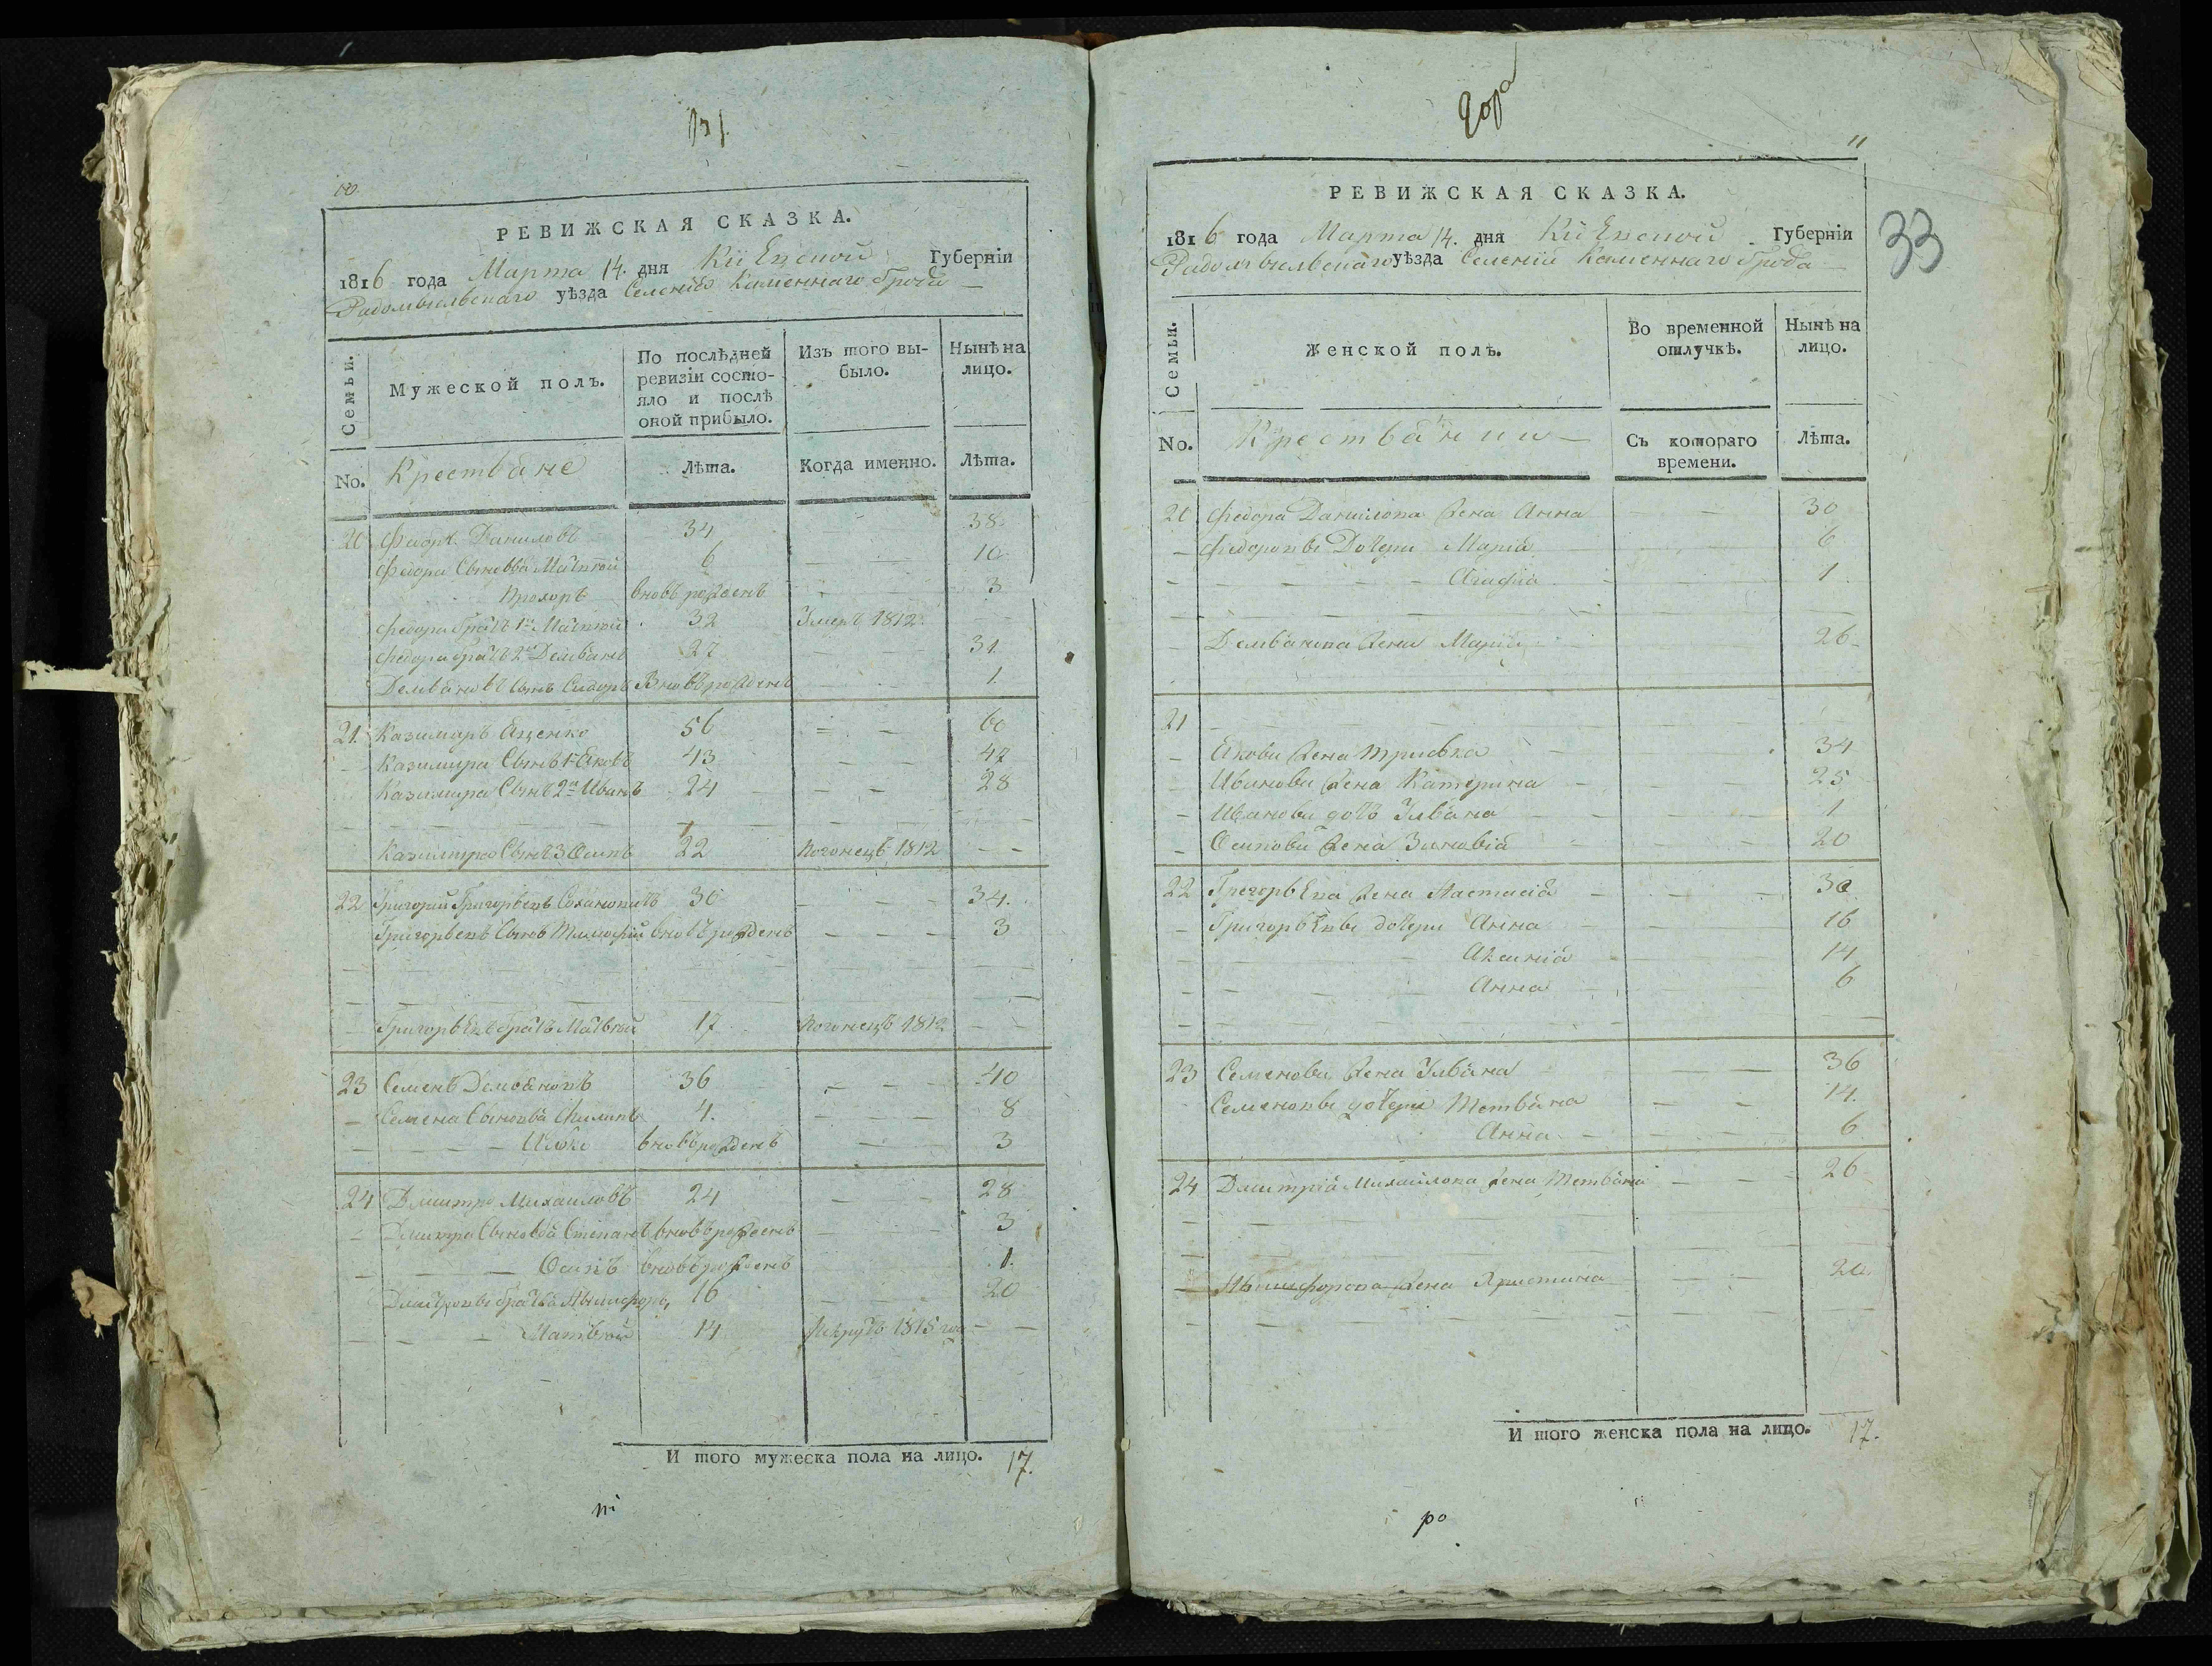 10.
РЕВИЖСКАЯ СКАЗКА.
1816 года Марта 14. дня Кіевской Губерніи
Радомысльскаго уѣзда Селенія Каменнаго Брода
Семьи.
Мужеской полъ.
По послѣдней ревизіи состояло и послѣ оной прибыло.
Изъ того выбыло.
Нынѣ на лицо.
No.
Крестьяне
Лѣта.
Когда именно.
Лѣта.
20 Федоръ Даниловъ 34 38.
Федора Сыновья Матвей 6 10
Прохоръ вновь рожденъ 3
Федора братъ 1й Матвей 32 Умеръ 1812.
Федора братъ 2й Демьянъ 27 31.
Демьяновъ сынъ Сидоръ Вновь рожденъ 1.
21. Казимиръ Яценко 56 60
Казимира Сынъ 1й Яковъ 43 47
Казимира Сынъ 2й Иванъ 24 28
Казимира Сынъ 3 Осипъ 22 Погонецъ 1812
22 Григорий Григорьевъ 30 34.
Григорьевъ Сынъ Тимофій вновь рожденъ 3
Григорьевъ братъ Матвей 17 Погонецъ 1812
23 Семенъ Демьяновъ 36 40
Семена Сыновья Филипъ 4. 8
Илько вновь рожденъ 3
24 Дмитро Михаиловъ 24 28
Дмитра Сыновья Степанъ вновь рожденъ 3
Осипъ вновь рожденъ 1.
братья Никифоръ 16 20
Матвей 14 Рекрутъ 1815
И того мужеска пола на лицо. 17.
11
РЕВИЖСКАЯ СКАЗКА.
33
1816 года Марта 14. дня Кіевской Губерніи
Радомысльскаго уѣзда Селеніи Каменнаго Брода
Семьи.
Женской полъ.
Во временной отлучкѣ.
Нынѣ на лицо.
No.
Крестьянки
Съ котораго времени.
Лѣта.
20 Федора Данилова жена Анна 30
Федоровы Дочери Марія 6
Агафія 1.
Демьянова жена Марія 26
21
Якова жена 34
Иванова жена Катерина 25
Иванова дочь Ульяна 1
Осипова жена Зиновія 20
22 Григорьева жена Настасія 30
Григорьевы дочери Анна 16
Аксинія 14
Анна 6
23 Семенова жена Ульяна 36
Семеновы дочери Татьяна 14.
Анна 6
24 Дмитрія Михайлова жена Татьяна 26
Никифорова жена Христина 20.
И того женска пола на лицо. 17.